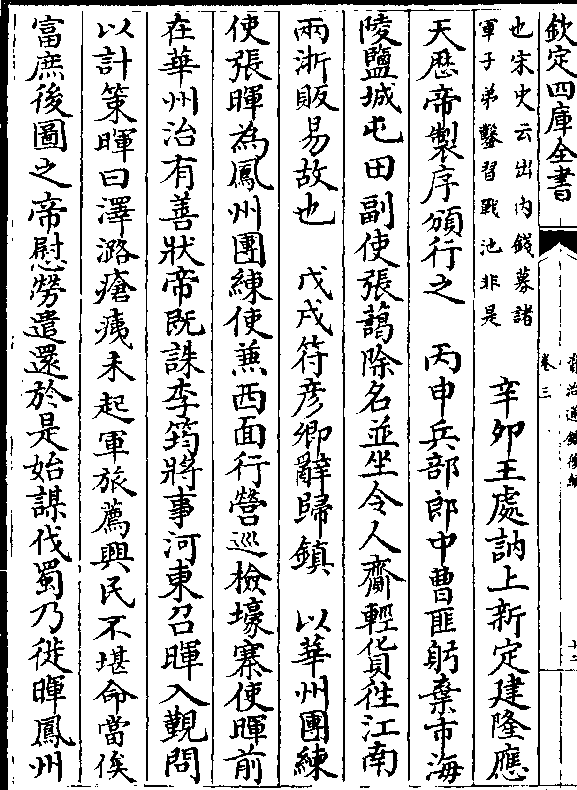 欽定四庫全書
卷三
也宋史云出内錢募諸
軍子弟鑿習戰池非是
辛卯王處訥上新定建隆應
天厯帝製序頒行之　丙申兵部郎中曹匪躬棄市海
陵鹽城屯田副使張藹除名並坐令人齎輕貨徃江南
兩浙販易故也　戊戌符彦卿辭歸鎮　以華州團練
使張暉為鳳州團練使兼西面行營巡檢壕寨使暉前
在華州治有善狀帝既誅李筠將事河東召暉入覲問
以計策暉曰澤潞瘡痍未起軍旅薦興民不堪命當俟
富庶後圖之帝慰勞遣還於是始謀伐蜀乃徙暉鳳州